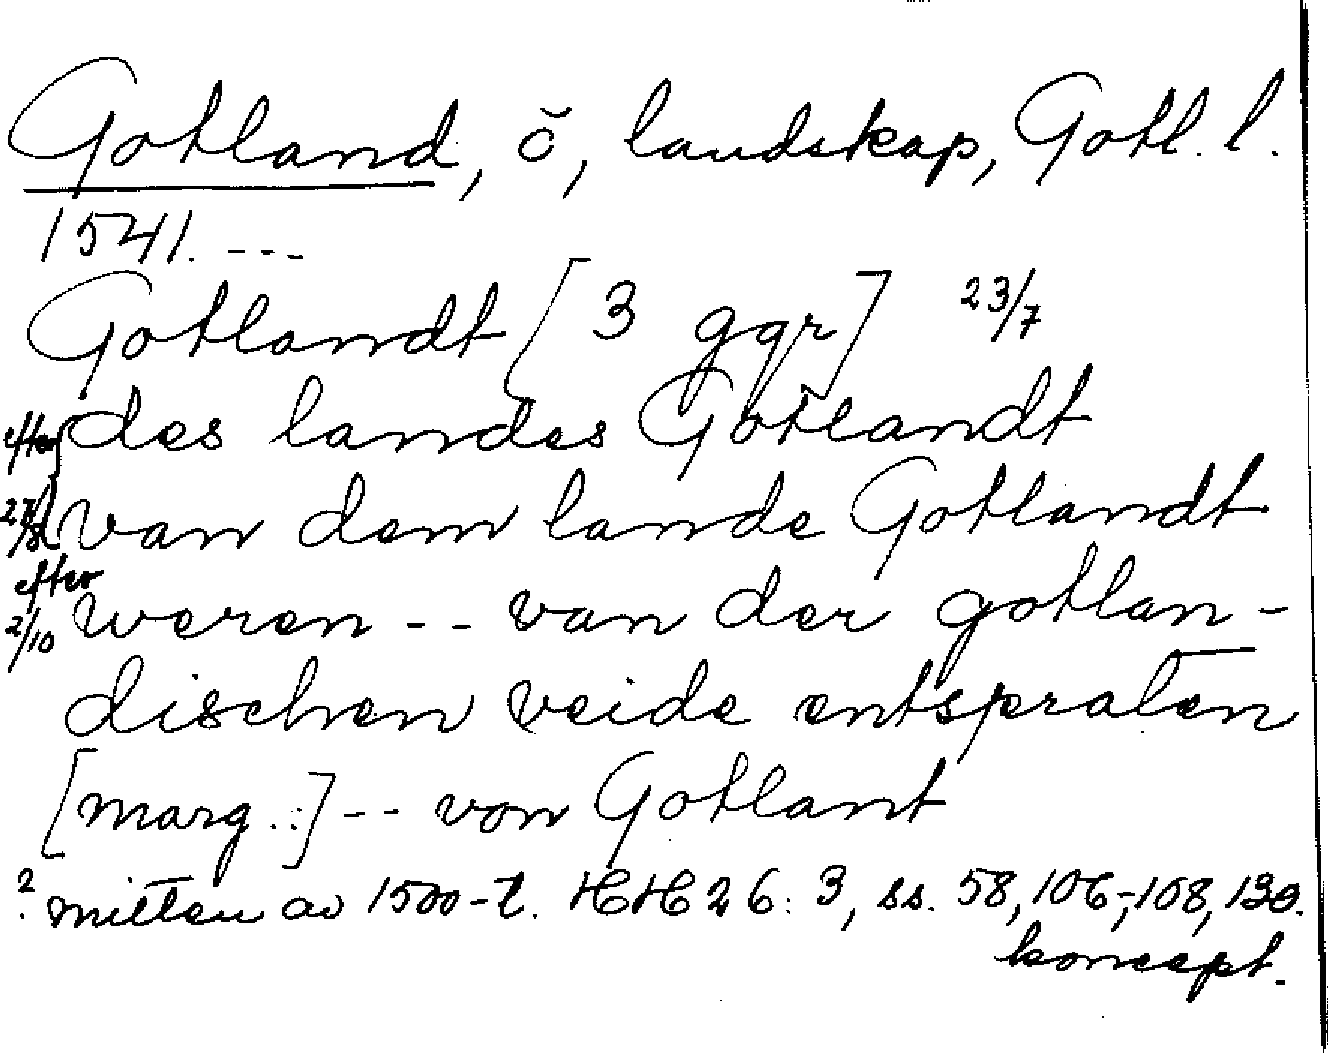 Gotland, ö, landskap, Gotl. l.
1541. ---
Gotlandt [3 ggr] 23/7
efter des landes Gotlandt
27/8 van dem lande Gotlandt
efter
2/10 weren -- van der gotlan-
dischen veide entspraten
[marg.:] -- von Gotlant
? mitten av 1500-t. HH 26: 3, ss. 58, 106-108, 130.
koncept.